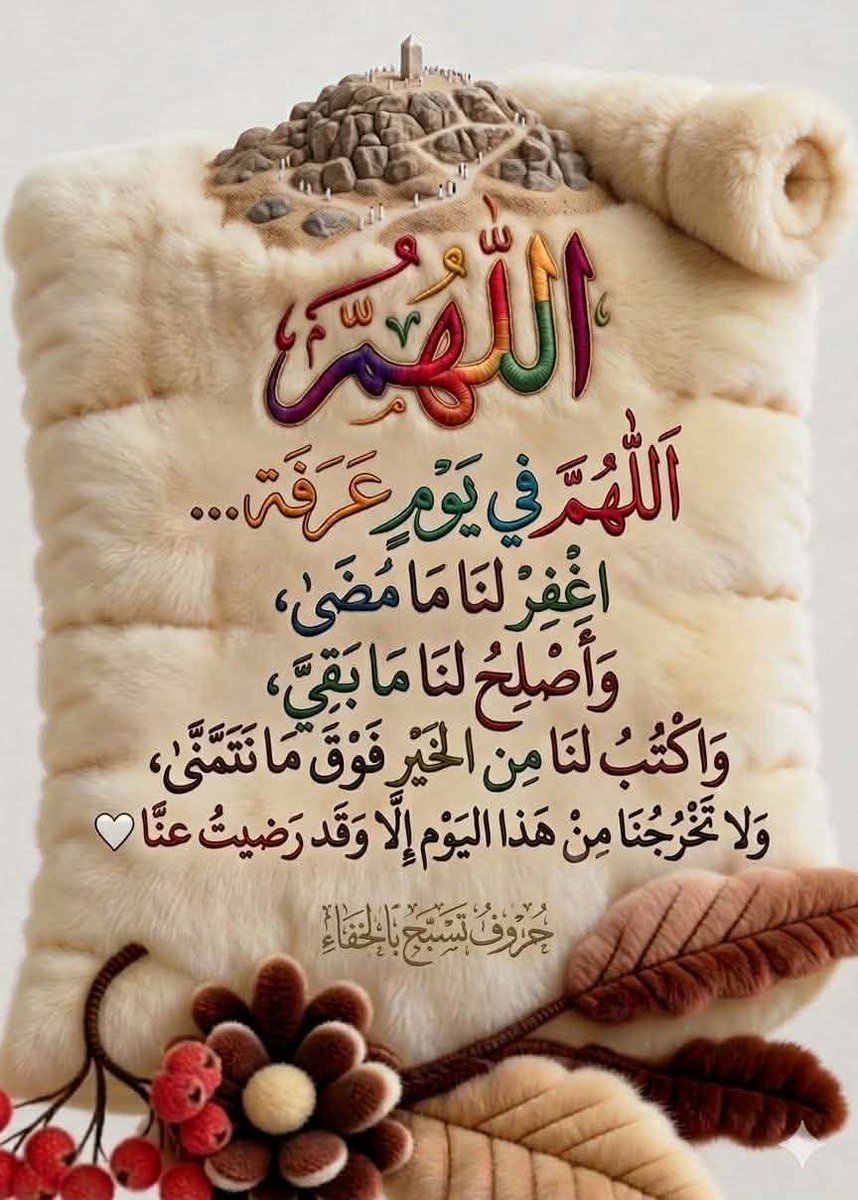 اللَّهُمَّ
اَللّٰهُمَّ في يَوْمٍ عَرَفَة...
اغْفِرْ لنَا مَا مُضَىٰ،
وَأَصْلِحُ لنَا مَا بَقِيَّ،
وَاكْتُبُ لنَا مِن الخَيْرِ فَوْقَ مَا نَتَمَنَّىٰ،
وَلا تَخْرُجُنَا مِنْ هَذا اليَوْم إِلَّا وَقَد رَضيتُ عنَّا 🤍
حُرُوفُ تَسَبّح بَالخَفَاءِ